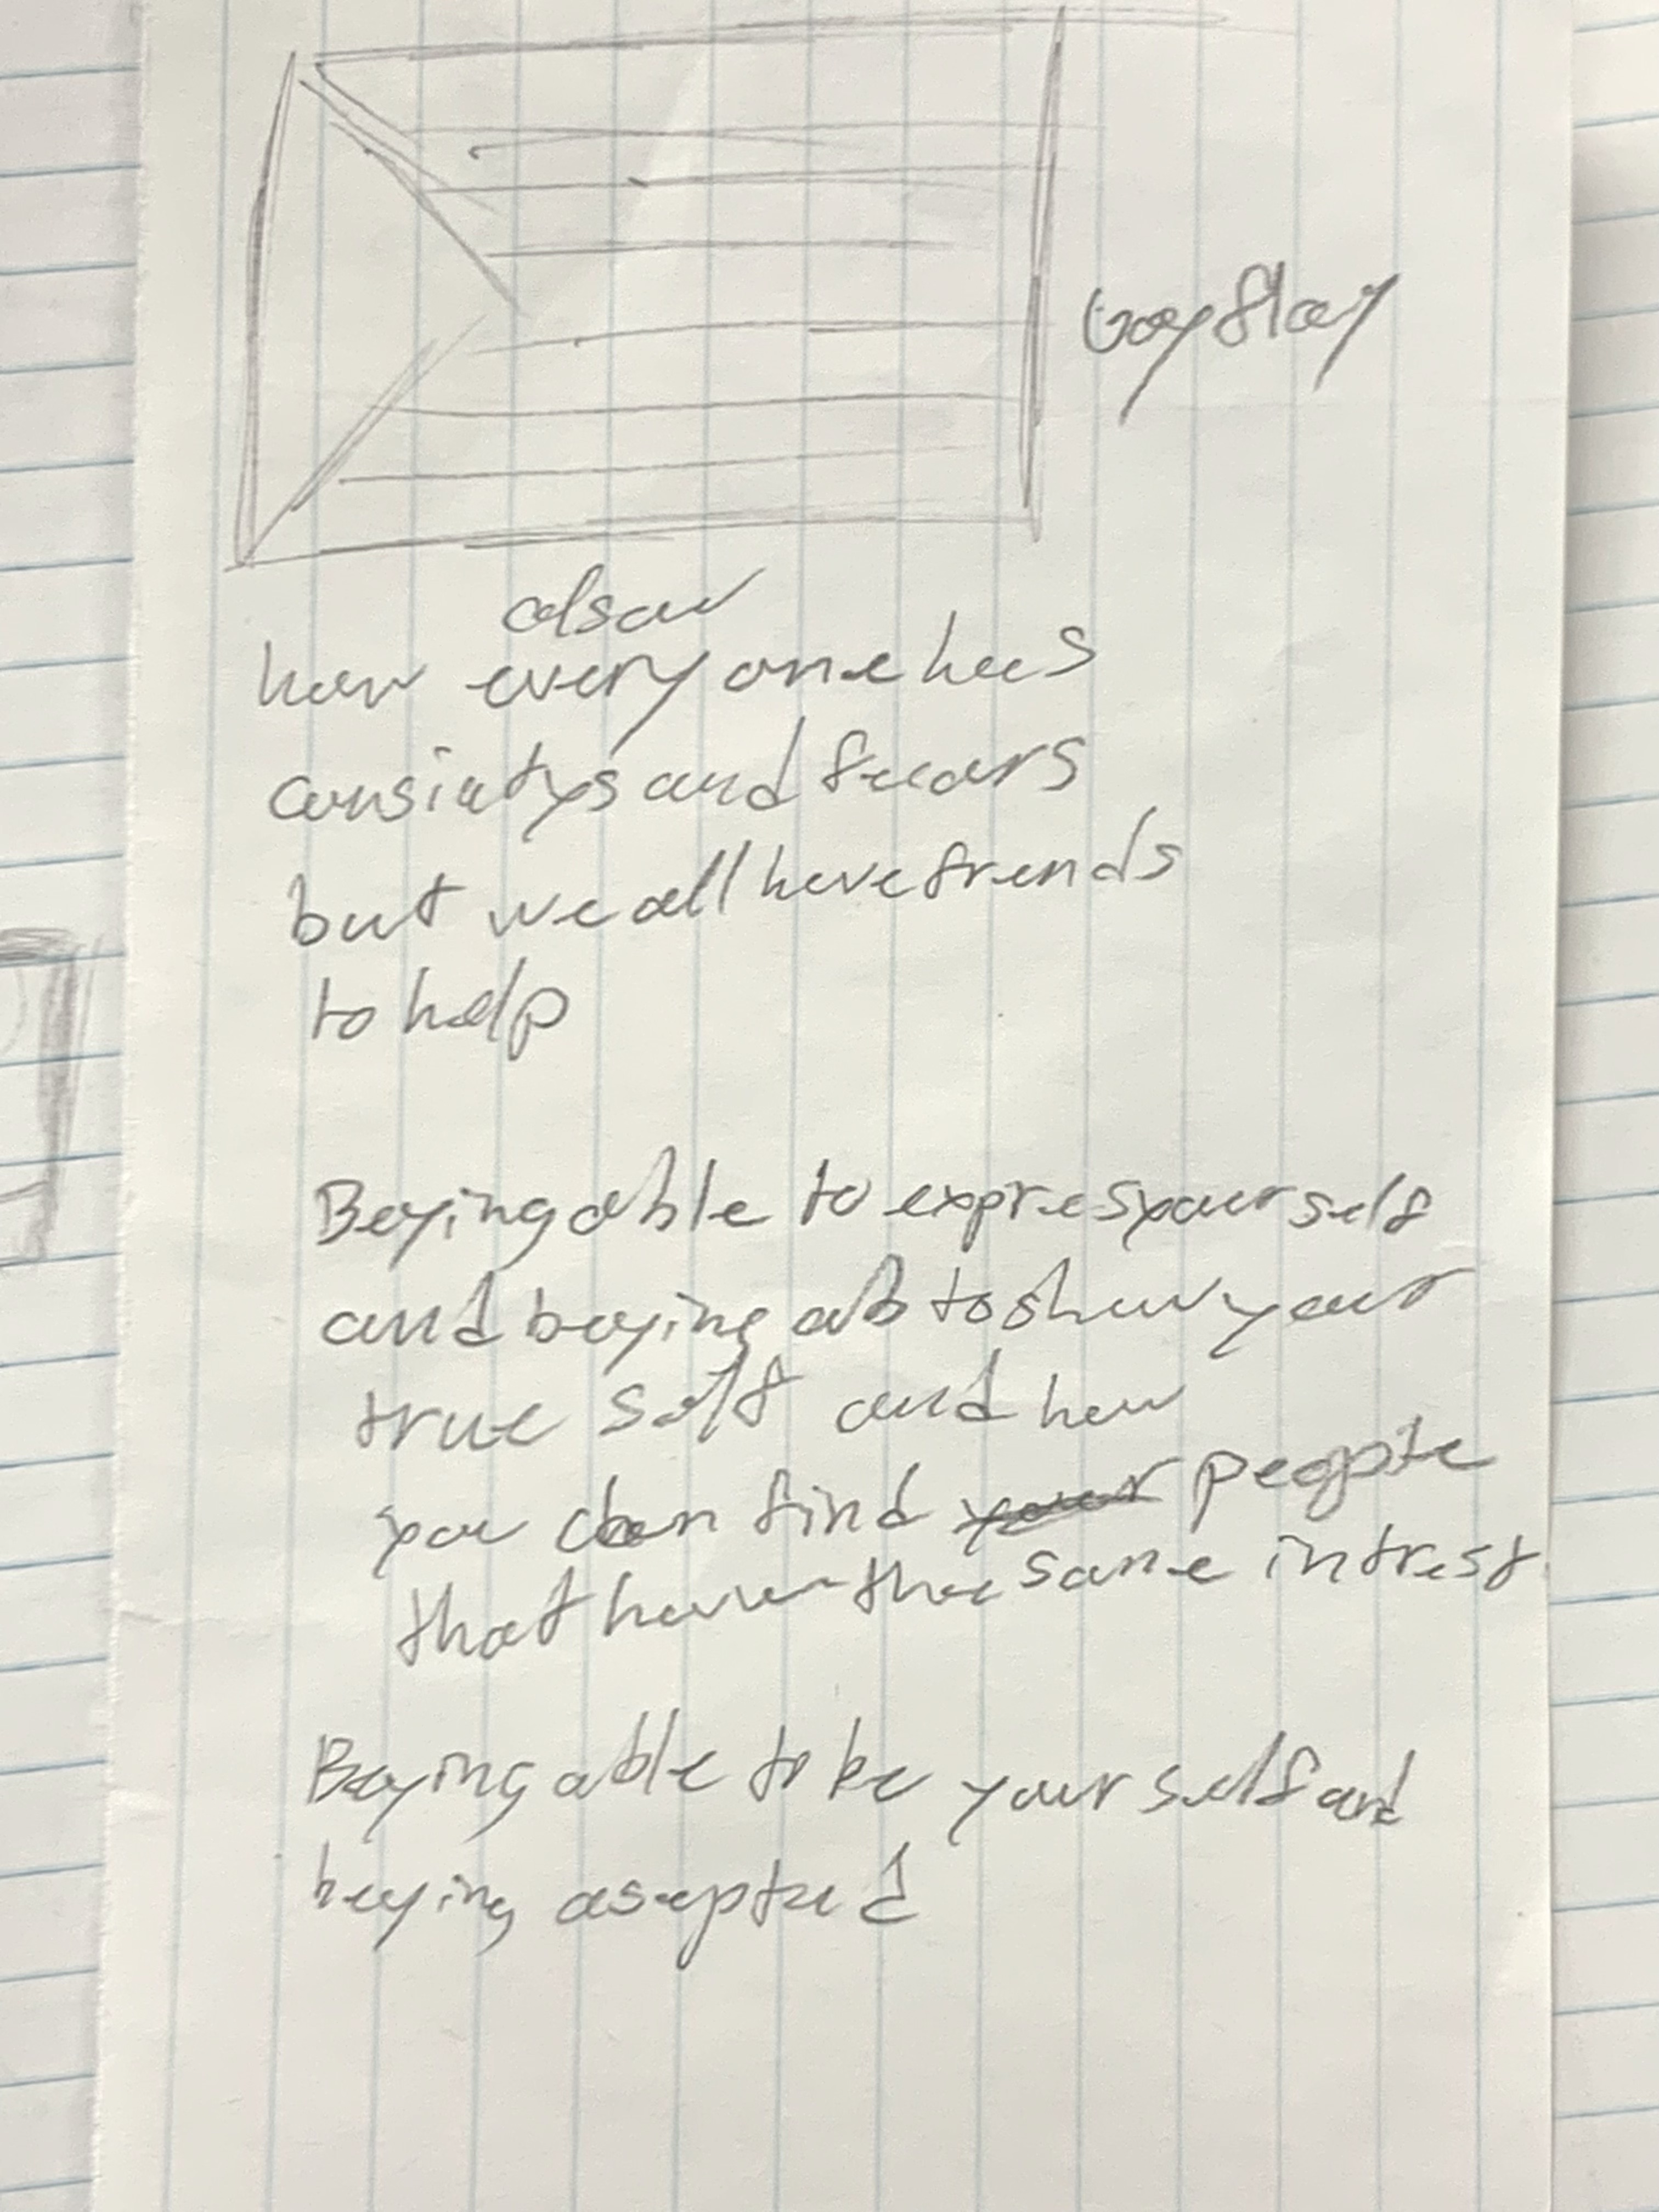 Gay flag
alsow
how every one hees
ansiatys and feears
but we all have frends
to help
Beying able to expres your self
and beying abl to show your
true self and how
you can find your people
that have the same intrest
Beying able to be your self and
beying asepted